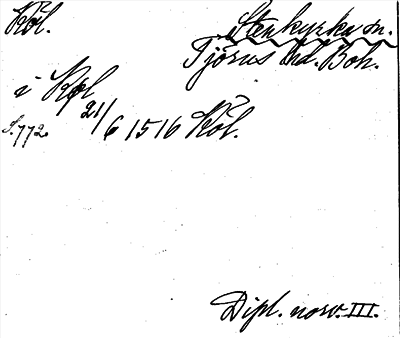 Köl.
Stenkyrka sn.
Tjörns hd. Boh.
i Köl
S. 772. 21/6 1516 Köl.
Dipl. norv. III.